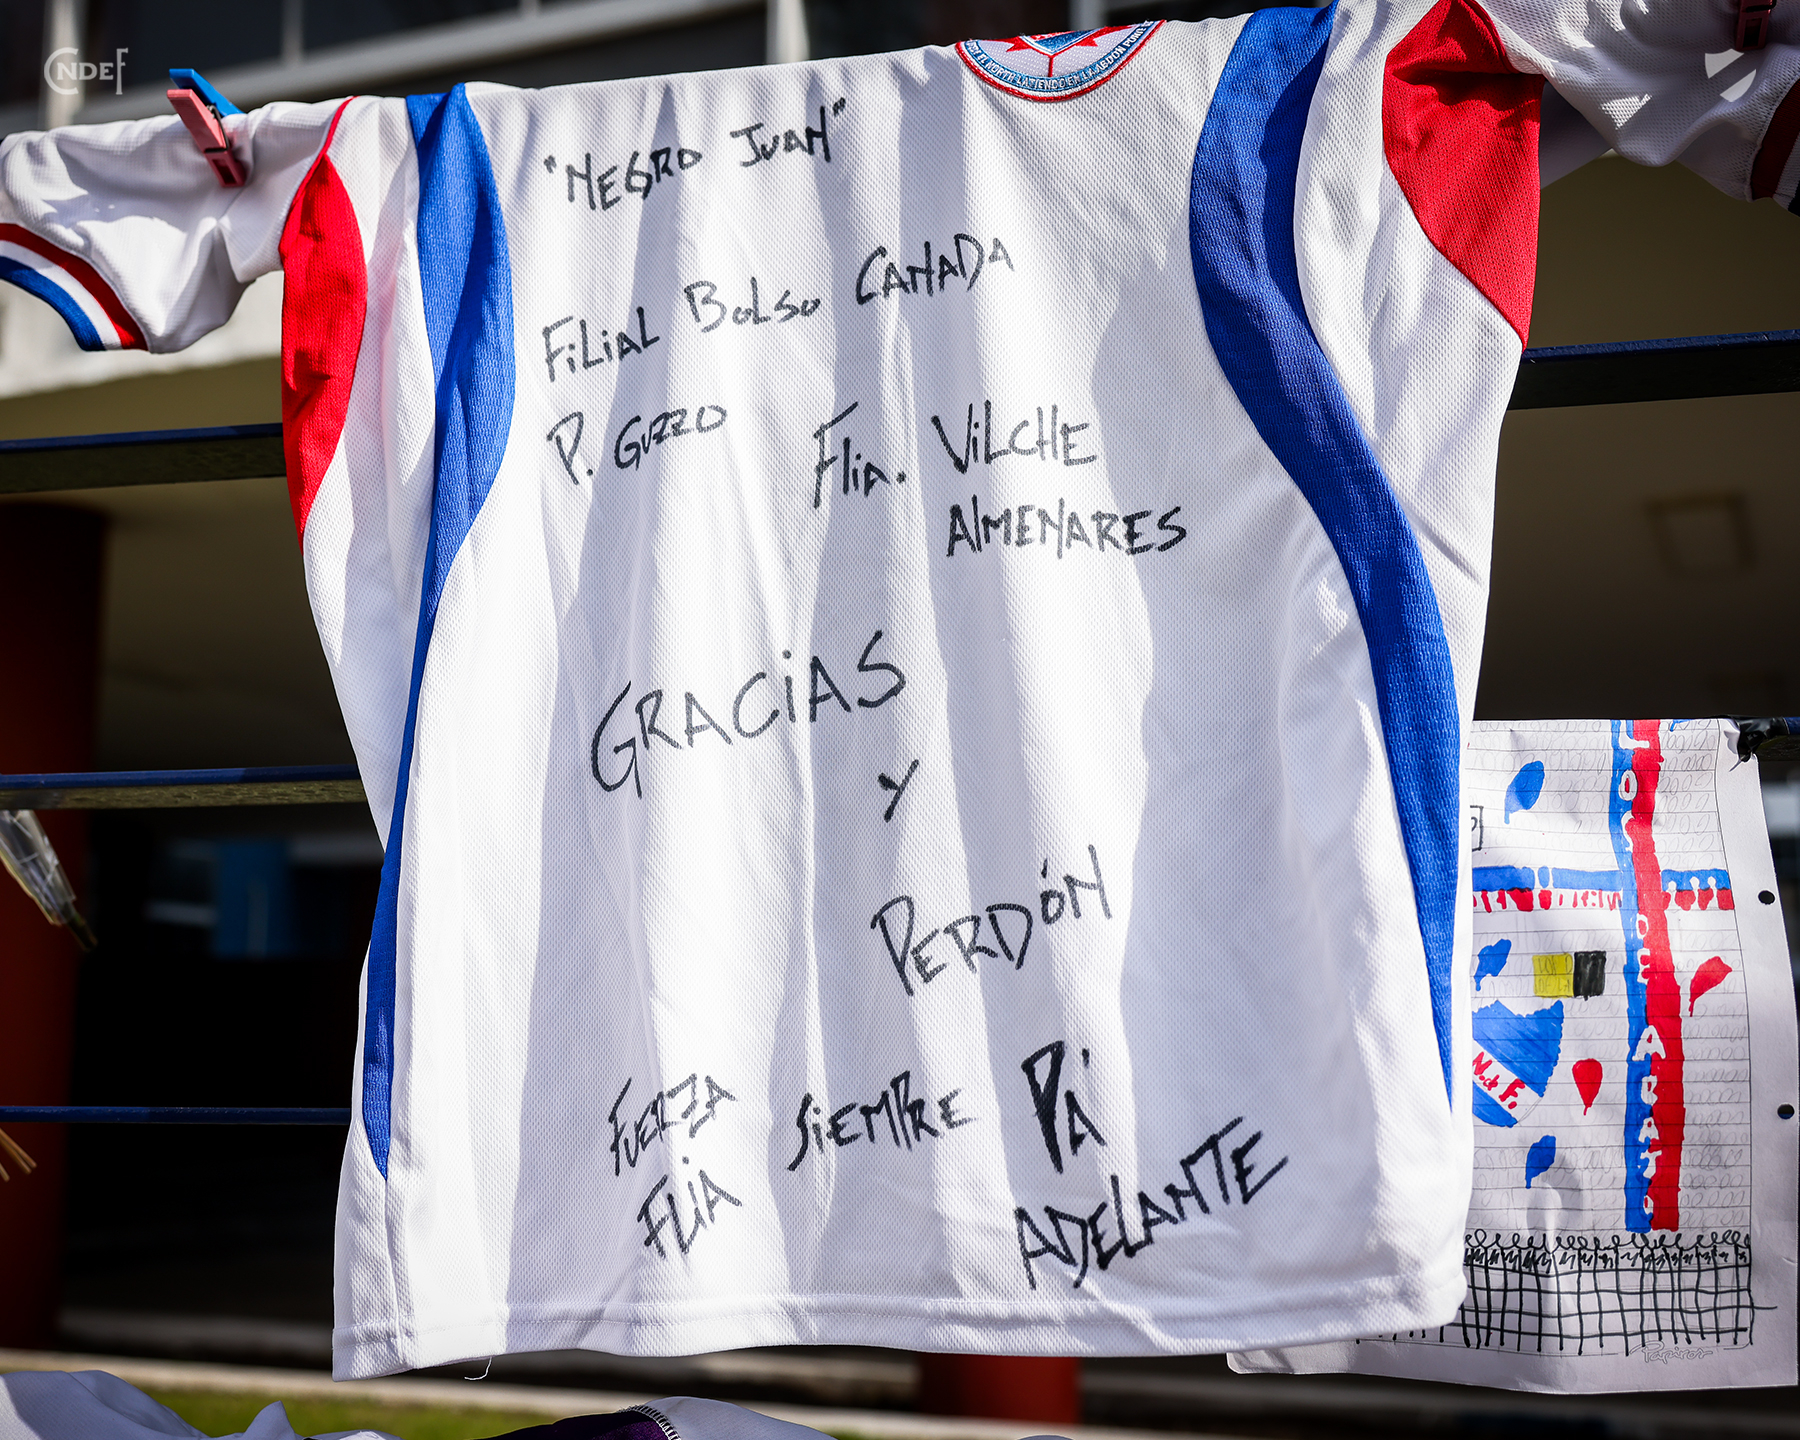 CNDEF
"NEGRO JUAN"
FiLiAL BOLSO CANADA
P. GUZZO
Flia. ViLCHE
AlMENARES
GRACiAS
Y
PERDÓN
FUERZA SiEMPRE PA'
FLiA ADELANTE
LOS DE ABAJO
N. de F.
Papiros